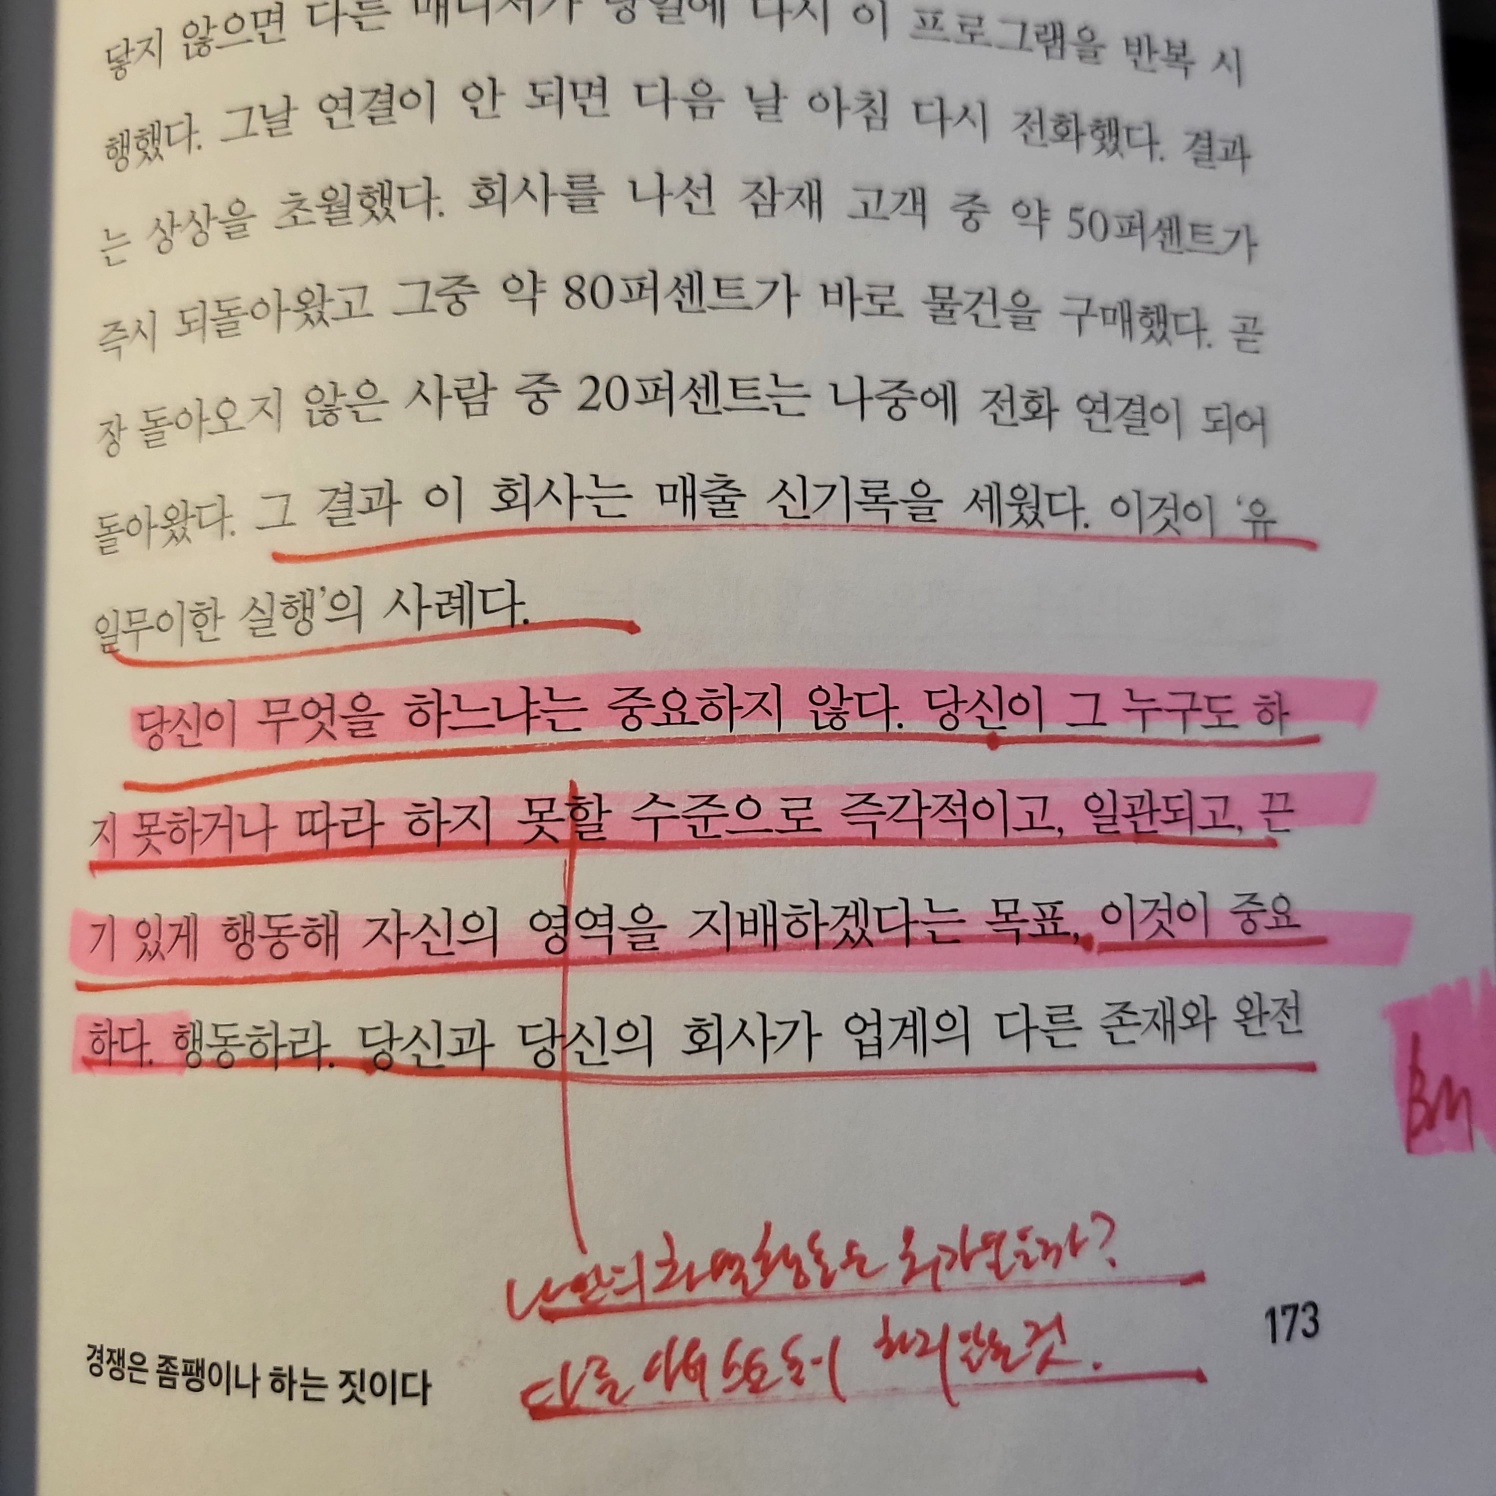 닿지 않으면 다른 매니저가 당일에 다시 이 프로그램을 반복 시
행했다. 그날 연결이 안 되면 다음 날 아침 다시 전화했다. 결과
는 상상을 초월했다. 회사를 나선 잠재 고객 중 약 50퍼센트가
즉시 되돌아왔고 그중 약 80퍼센트가 바로 물건을 구매했다. 곧
장 돌아오지 않은 사람 중 20퍼센트는 나중에 전화 연결이 되어
돌아왔다. 그 결과 이 회사는 매출 신기록을 세웠다. 이것이 ‘유
일무이한 실행’의 사례다.
당신이 무엇을 하느냐는 중요하지 않다. 당신이 그 누구도 하
지 못하거나 따라 하지 못할 수준으로 즉각적이고, 일관되고, 끈
기 있게 행동해 자신의 영역을 지배하겠다는 목표, 이것이 중요
하다. 행동하라. 당신과 당신의 회사가 업계의 다른 존재와 완전
BM
나만의 차별 행동은
다른 하지 않는 것.
173
경쟁은 좀팽이나 하는 짓이다